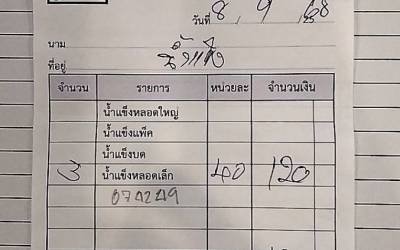 วันที่ 8 / 9 / 68
นาม
ที่อยู่ น้ำแข็ง
จำนวน รายการ หน่วยละ จำนวนเงิน
น้ำแข็งหลอดใหญ่
น้ำแข็งแพ็ค
น้ำแข็งบด
3 น้ำแข็งหลอดเล็ก 40 120